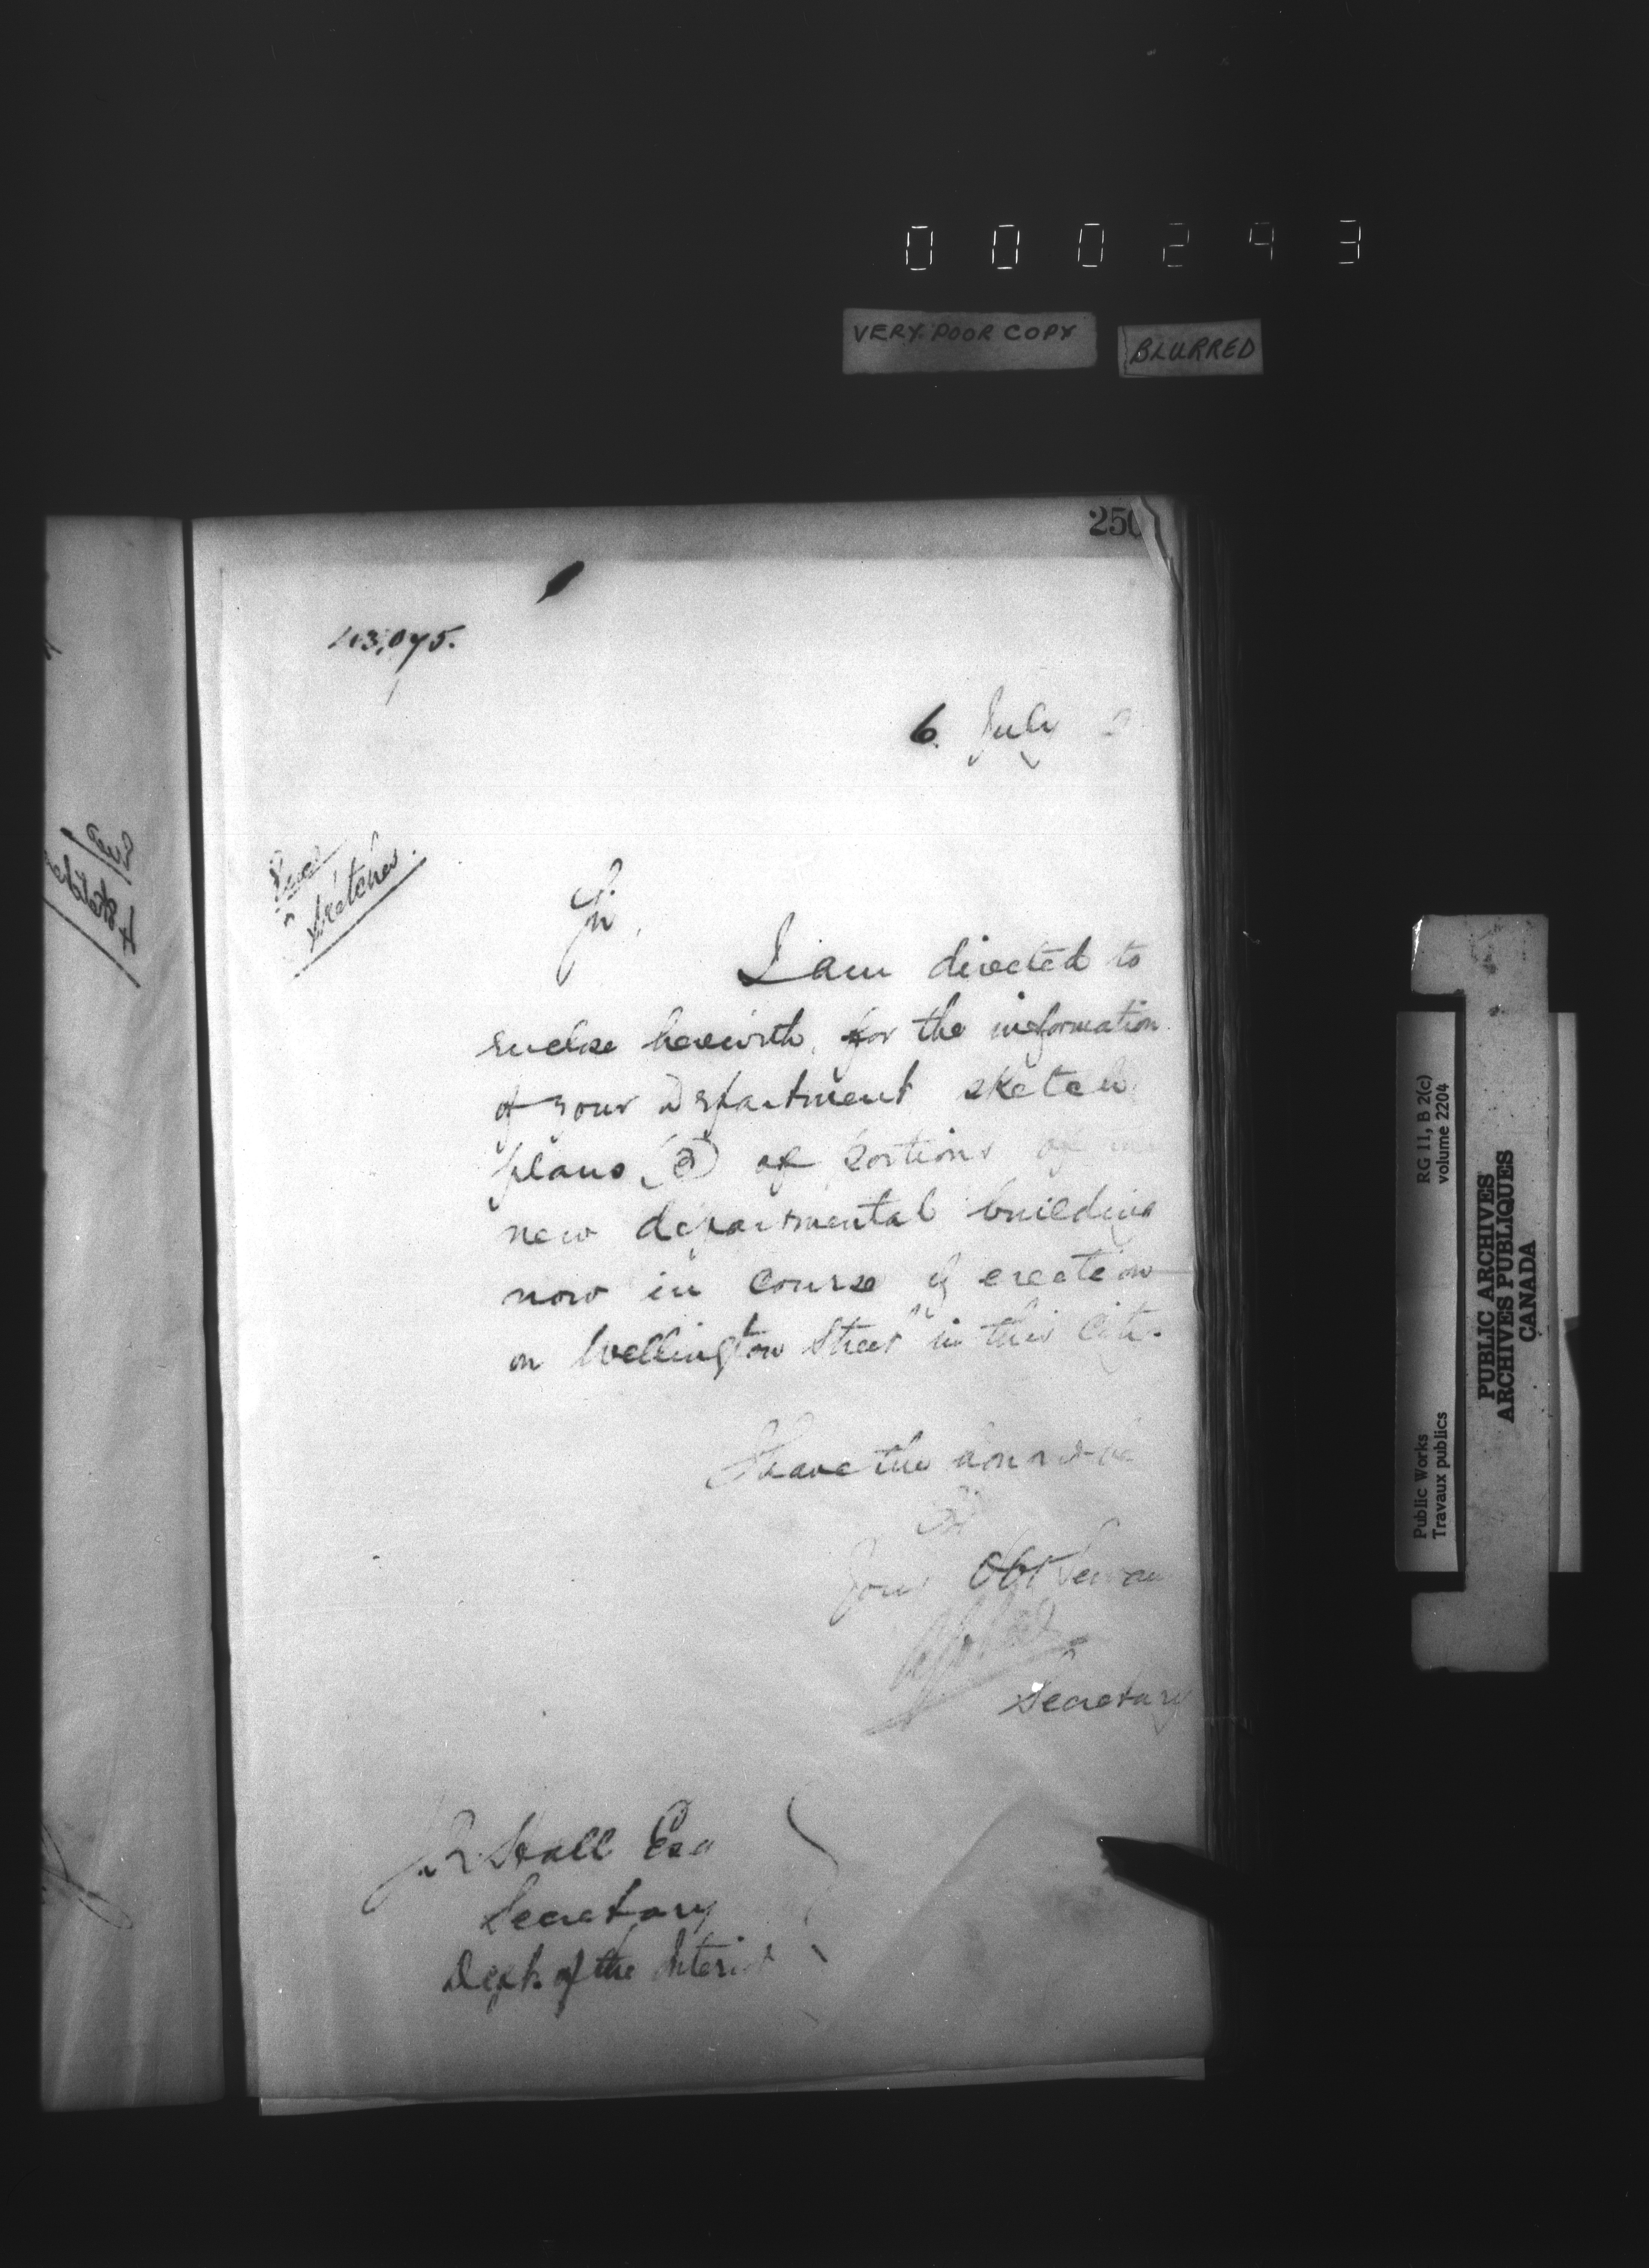 000293
VERY POOR COPY
BLURRED
250
6 July
sketches.
Sir,
I am directed to
enclose herewith, for the information
of your Department sketch
plans, of portions of
new departmental building
now in course of erection
on Wellington Street in this City.
I have the honor to be
Sir
Your Obt Servan
Secretary
J.R. Hall Esq
Secretary
Dept. of the Interior
Encs
4 sketches
Public Works
Travaux publics
RG 11, B 2(c)
volume 2204
PUBLIC ARCHIVES
ARCHIVES PUBLIQUES
CANADA